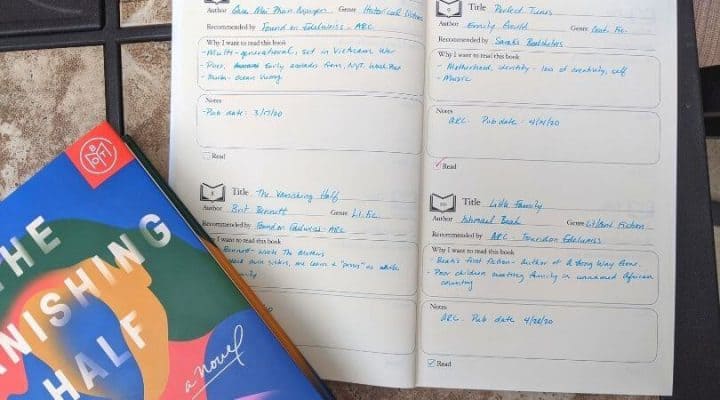 Author Genre Historical Fiction
Recommended by Found on Edelweiss - ARC
Why I want to read this book
- Multi-generational, set in Vietnam War
- Poet, early accolades from NYT, Wash Post
- Ocean Vuong
Notes
- Pub date: 3/17/20
Read
Title Perfect Tunes
Author Emily Gould Genre Cont. Fic.
Recommended by Sarah's Bookshelves
Why I want to read this book
- Motherhood, identity - loss of creativity, self
- Music
Notes
ARC. Pub date - 4/14/20
Read
Title The Vanishing Half
Author Brit Bennett Genre Lit. Fic.
Recommended by Found on Edelweiss - ARC
Why I want to read this book
Bennett wrote The Mothers
twin sisters, one learns to "pass" as white
Title Little Family
Author Ishmael Beah Genre Lit/Cont Fiction
Recommended by ARC - Found on Edelweiss
Why I want to read this book
- Beah's first fiction - author of A Long Way Gone.
- Poor children creating family in unnamed African
country
Notes
ARC. Pub date 4/28/20
Read
BOTM
THE
VANISHING
HALF
a novel